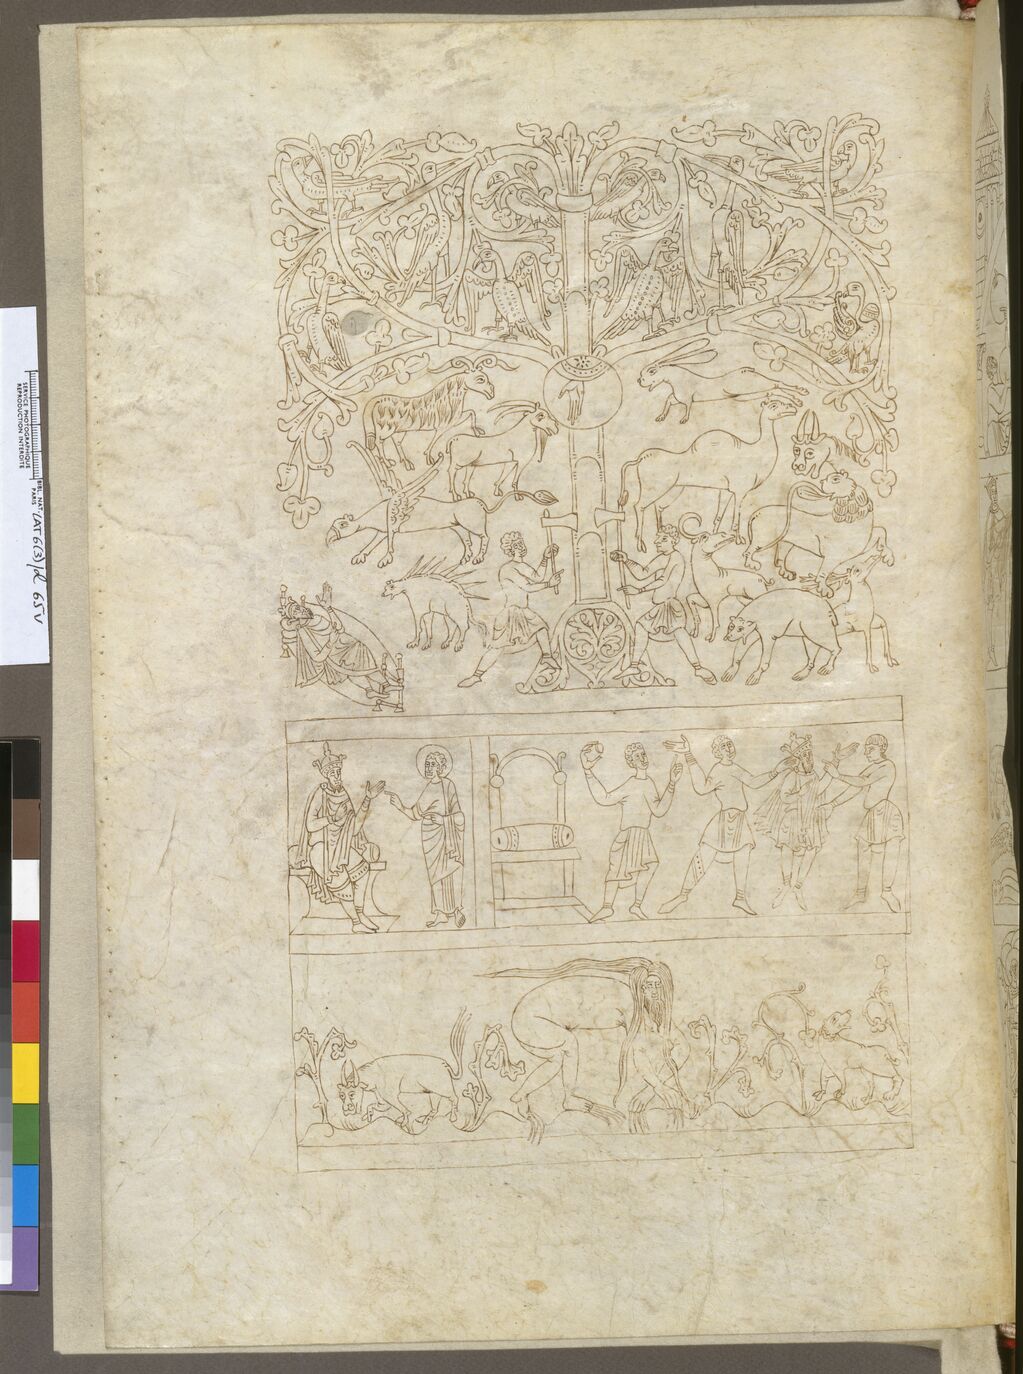 SERVICE PHOTOGRAPHIQUE
REPRODUCTION INTERDITE
BIBL. NAT.
PARIS
LAT 6(3) fol 65v